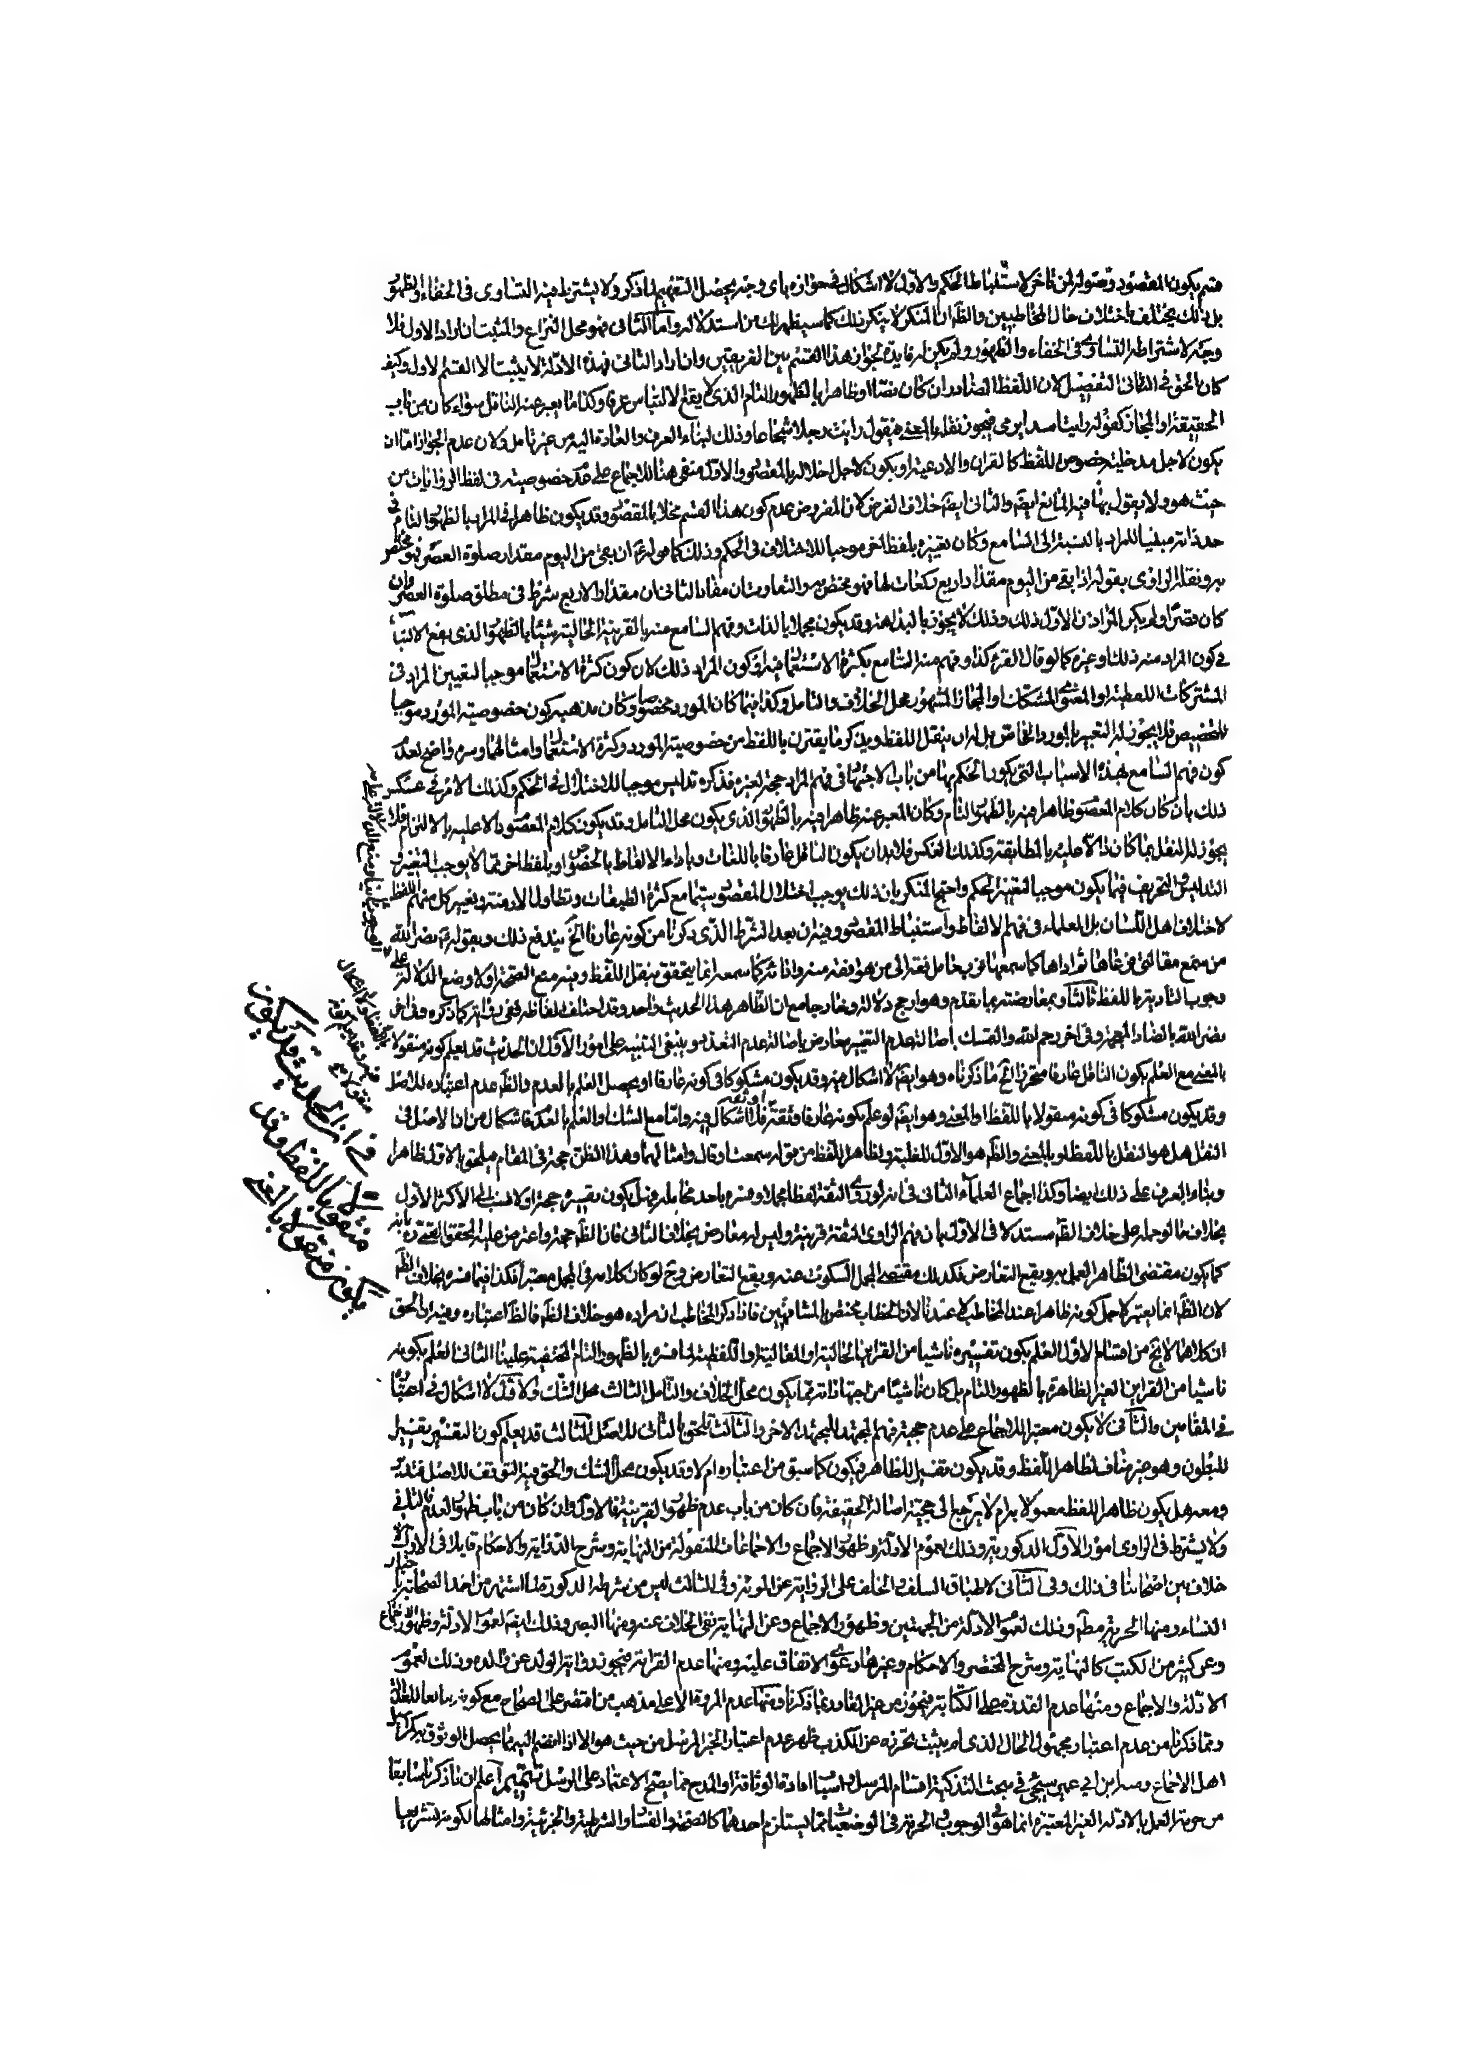 قسم يكون المقصود وصوله لمن تأخر لاستنباط الحكم والاول لا اشكال في جوازه باي وجه يحصل التفهيم لما ذكر ولا يشترط فيه التساوي في الخفاء والظهور
بل ذلك يختلف باختلاف حال المخاطبين والظ ان المنكر لا ينكر ذلك كما سيظهر لك من استدلاله واما الثاني فهو محل النزاع والمثبت ان اراد الاول فلا
وجه لاشتراطه التساوي في الخفاء والظهور ولم يكن له فايدة لجواز هذا القسم بين الفريقين وان اراد الثاني فهذه الادلة لا يثبت الا القسم الاول وكيف
كان الحق في الثاني التفصيل لان اللفظ الصادر ان كان نصا او ظاهرا بالظهور التام الذي لا يقع الالتباس عرفا وكذا ما يعبر عنه الناقل سواء كان من باب
الحقيقة او المجاز كقوله رايت اسدا يرمي فيجوز نقله بالمعنى فيقول رايت رجلا شجاعا وذلك لبناء العرف والعادة اليه من غير تامل ولان عدم الجواز اما ان
يكون لاجل مدخلية خصوص اللفظ كالقران والادعية او يكون لاجل اخلاله بالمقصود والاول منفي هنا للاجماع على عدم خصوصيته في لفظ الروايات من
حيث هو ولا يقول بها فيه المانع ايضا والثاني ايضا خلاف الفرض لان المفروض عدم كون هذا القسم مخلا بالمقصود وقد يكون ظاهرا في المراد بالظهور التام في
حد ذاته مبينا للمراد بالنسبة الى السامع وكان تغييره بلفظ اخر موجبا للاختلاف في الحكم وذلك كما هو لو قال ان بقي من اليوم مقدار صلوة العصر فهو مختص
به ونقله الراوي بقوله اذا بقي من اليوم مقدار اربع ركعات لها فهو مختص به والتفاوت ان مفاد الثاني ان مقدار الاربع شرط في مطلق صلوة العصر وان
كان قصرا ولم يكن المراد من الاول ذلك وذلك لا يجوز بالبداهة وقد يكون مجملا بالذات وفهم السامع منه بالقرينة الحالية شيئا بالظهور الذي يقع الالتباس
في كون المراد منه ذلك او غيره كما لو قال القرء كذا وفهم منه السامع بكثرة الاستعمال فيه كون المراد ذلك لان كون كثرة الاستعمال موجبا لتعيين المراد في
المشتركات اللفظية او المعنوي المشككات او المجاز المشهور محل الخلاف والتامل وكذا فيما كان المورد مخصوصا وكان مذهبه كون خصوصية المورد موجبا
للتخصيص فلا يجوز له التعبير بالمورد الخاص بل له ان ينقل اللفظ ويذكر ما يقترن باللفظ من خصوصية المورد وكثرة الاستعمال وامثالهما وسره واضح لعدم
كون فهم السامع بهذه الاسباب التي يكون الحكم بها من باب الاجتهاد في فهم المراد حجة لغيره فذكره تدليس موجبا للاختلال في الحكم وكذلك الامر في عكس
ذلك بان كان كلام المعصوم ظاهرا فيه بالظهور التام وكان المعبر عنه ظاهرا فيه بالظهور الذي يكون محل التامل وقد يكون كلام المعصوم دالا عليه بالالتزام فلا
يجوز للناقل نقله بما كان دالا عليه بالمطابقة وكذلك العكس فلابد ان يكون الناقل عارفا باللغات وباداء الالفاظ بالخصوص او بلفظ اخر مما لا يوجب التغيير و
التدليس والتحريف فيما يكون موجبا لتغيير الحكم واحتج المنكر بان ذلك يوجب اختلال المقصود سيما مع كثرة الطبقات وتطاول الازمنة وتغيير كل منهم اللفظ
لاختلاف اهل اللسان بل العلماء في فهم الالفاظ واستنباط المقصود وفيه ان بعد الشرط الذي ذكرنا من كونه عارفا الخ يندفع ذلك وبقوله ص نضر الله
من سمع مقالتي فوعاها ثم اداها كما سمعها فرب حامل فقه الى من هو افقه منه واداؤه كما سمعه انما يتحقق بنقل اللفظ وفيه منع الصحة اولا ومنع الدلالة على
وجوب التادية باللفظ ثانيا وبمعارضته بما تقدم وهو ارجح دلالة وعمارجا مع ان الظاهر هذا الحديث واحد وقد اختلف الفاظه ففي رواية كما ذكره وفي اخرى
نضر الله بالضاد المعجمة وفي اخر رحم الله والتمسك باصالة عدم التغيير معارض باصالة عدم التعدد وينبغي التنبيه على امور الاول ان الحديث قد يعلم كونه منقولا
بالمعنى مع العلم بكون الناقل عارفا متحرزا الخ ما ذكرناه وهو ايضا لا اشكال فيه وقد يكون مشكوكا في كونه عارفا او يحصل العلم بالعدم والظ عدم اعتباره للاصل
وقد يكون مشكوكا في كونه منقولا باللفظ او المعنى وهو ايضا لو علم كونه عارفا وثقة فلا اشكال فيه واما مع الشك او العلم بالعدم فاشكال من ان الاصل في
النقل هل هو النقل باللفظ او بالمعنى والظ هو الاول للغلبة ولظاهر اللفظ من قوله سمعت او قال وامثالهما وهذا الظن حجة في المقام ملحق بالاول ظاهرا
وبناء العرف على ذلك ايضا وكذا اجماع العلماء الثاني في انه لو روى الثقة لفظا مجملا وفسره باحد محامله فهل يكون تفسيره حجة او لا نسب الى الاكثر الاول
بخلاف ما لو حمله على خلاف الظ مستدلا في الاول بان فهم الراوي الثقة قرينة وليس له معارض بخلاف الثاني فان الظ حجة واعترض عليه المحقق القمي ره بانه
كما يكون مقتضى الظاهر العمل به ويقع التعارض فكذلك مقتضى المجمل السكوت عنه ويقع التعارض وح لو كان كلامه في المجمل معتبرا فكذا فيما فسره بخلاف الظ
لان الظ انما يعتبر لاجل كونه ظاهرا عند المخاطب لا عندنا لان الخطاب مختص بالمشافهين فاذا ذكر المخاطب ان مراده هو خلاف الظ فالظ اعتباره وفيه ان الحق
ان كلامهما لا يخ من اقسام الاول العلم بكون تفسيره ناشيا من القراين الحالية او المقالية او اللفظية لما فسره بالظهور التام المختفية علينا الثاني العلم بكونه
ناشيا من القراين الغير الظاهرة بالظهور التام بل كان ناشيا من اجتهاداته مما يكون محل الخلاف والتامل الثالث محل الشك والاول لا اشكال في اعتباره
في المقامين والثاني لا يكون معتبرا للاجماع على عدم حجية فهم المجتهد للمجتهد الاخر والثالث يلحق بالثاني للاصل الثالث قد يعلم كون التفسير تفسيرا
للبطون وهو غير مناف لظاهر اللفظ وقد يكون تفسيرا للظاهر فيكون كما سبق من اعتباره ام لا وقد يكون محل الشك والحق فيه التوقف للاصل فتدبر
ومعه هل يكون ظاهر اللفظ معمولا به ام لا يرجع الى حجية اصالة الحقيقة فان كان من باب عدم ظهور القرينة فالاول وان كان من باب ظهور العدم فالثاني
ولا يشترط في الراوي امور الاول الذكورية وذلك لعموم الادلة وظهور الاجماع والاجماعات المنقولة من النهاية وشرح الدراية والاحكام قايلا في الاول لا
خلاف بين اصحابنا في ذلك وفي الثاني لاطباق السلف والخلف على الرواية عن المونث وفي الثالث ليس من شرطه الذكورة لما اشتهر من اخذ الصحابة باخبار
النساء ومنها الحرية مط وذلك لعموم الادلة من الجهتين وظهور الاجماع وعن النهاية نفي الخلاف عنه ومنها البصر وذلك ايضا لعموم الادلة وظهور الاجماع
وعن كثير من الكتب كالنهاية وشرح المختصر والاحكام وغيرها دعوى الاتفاق عليه ومنها عدم القرابة فيجوز رواية الولد عن والده وذلك لعموم
الادلة والاجماع ومنها عدم القدرة على الكتابة فيجوز من غير القادر لما ذكرنا ومنها عدم المروة الا على مذهب من اقتصر على الصحاح مع كونه تابعا للعدالة
ومما ذكرنا من عدم اعتبار مجهول الحال الذي لم يثبت تحرزه عن الكذب ظهر عدم اعتبار الخبر المرسل من حيث هو الا اذا انضم اليه ما يحصل الوثوق به كمراسيل
اهل الاجماع ومراسيل ابن ابي عمير سيجئ في مبحث التذكية اقسام المرسل واسباب افادة الوثاقة او المدح مما يصح الاعتماد على المرسل تتميم اعلم ان ما ذكرنا سابقا
من حرمة العمل بالادلة الغير المعتبرة انما هو في الوجوب والحرمة وفي الوضعيات مما يستلزم احدهما كالصحة والفساد والشرطية والجزئية وامثالها لكونه تشريعا
في ان الحديث قد يكون
منقولا باللفظ وقد
يكون منقولا بالمعنى